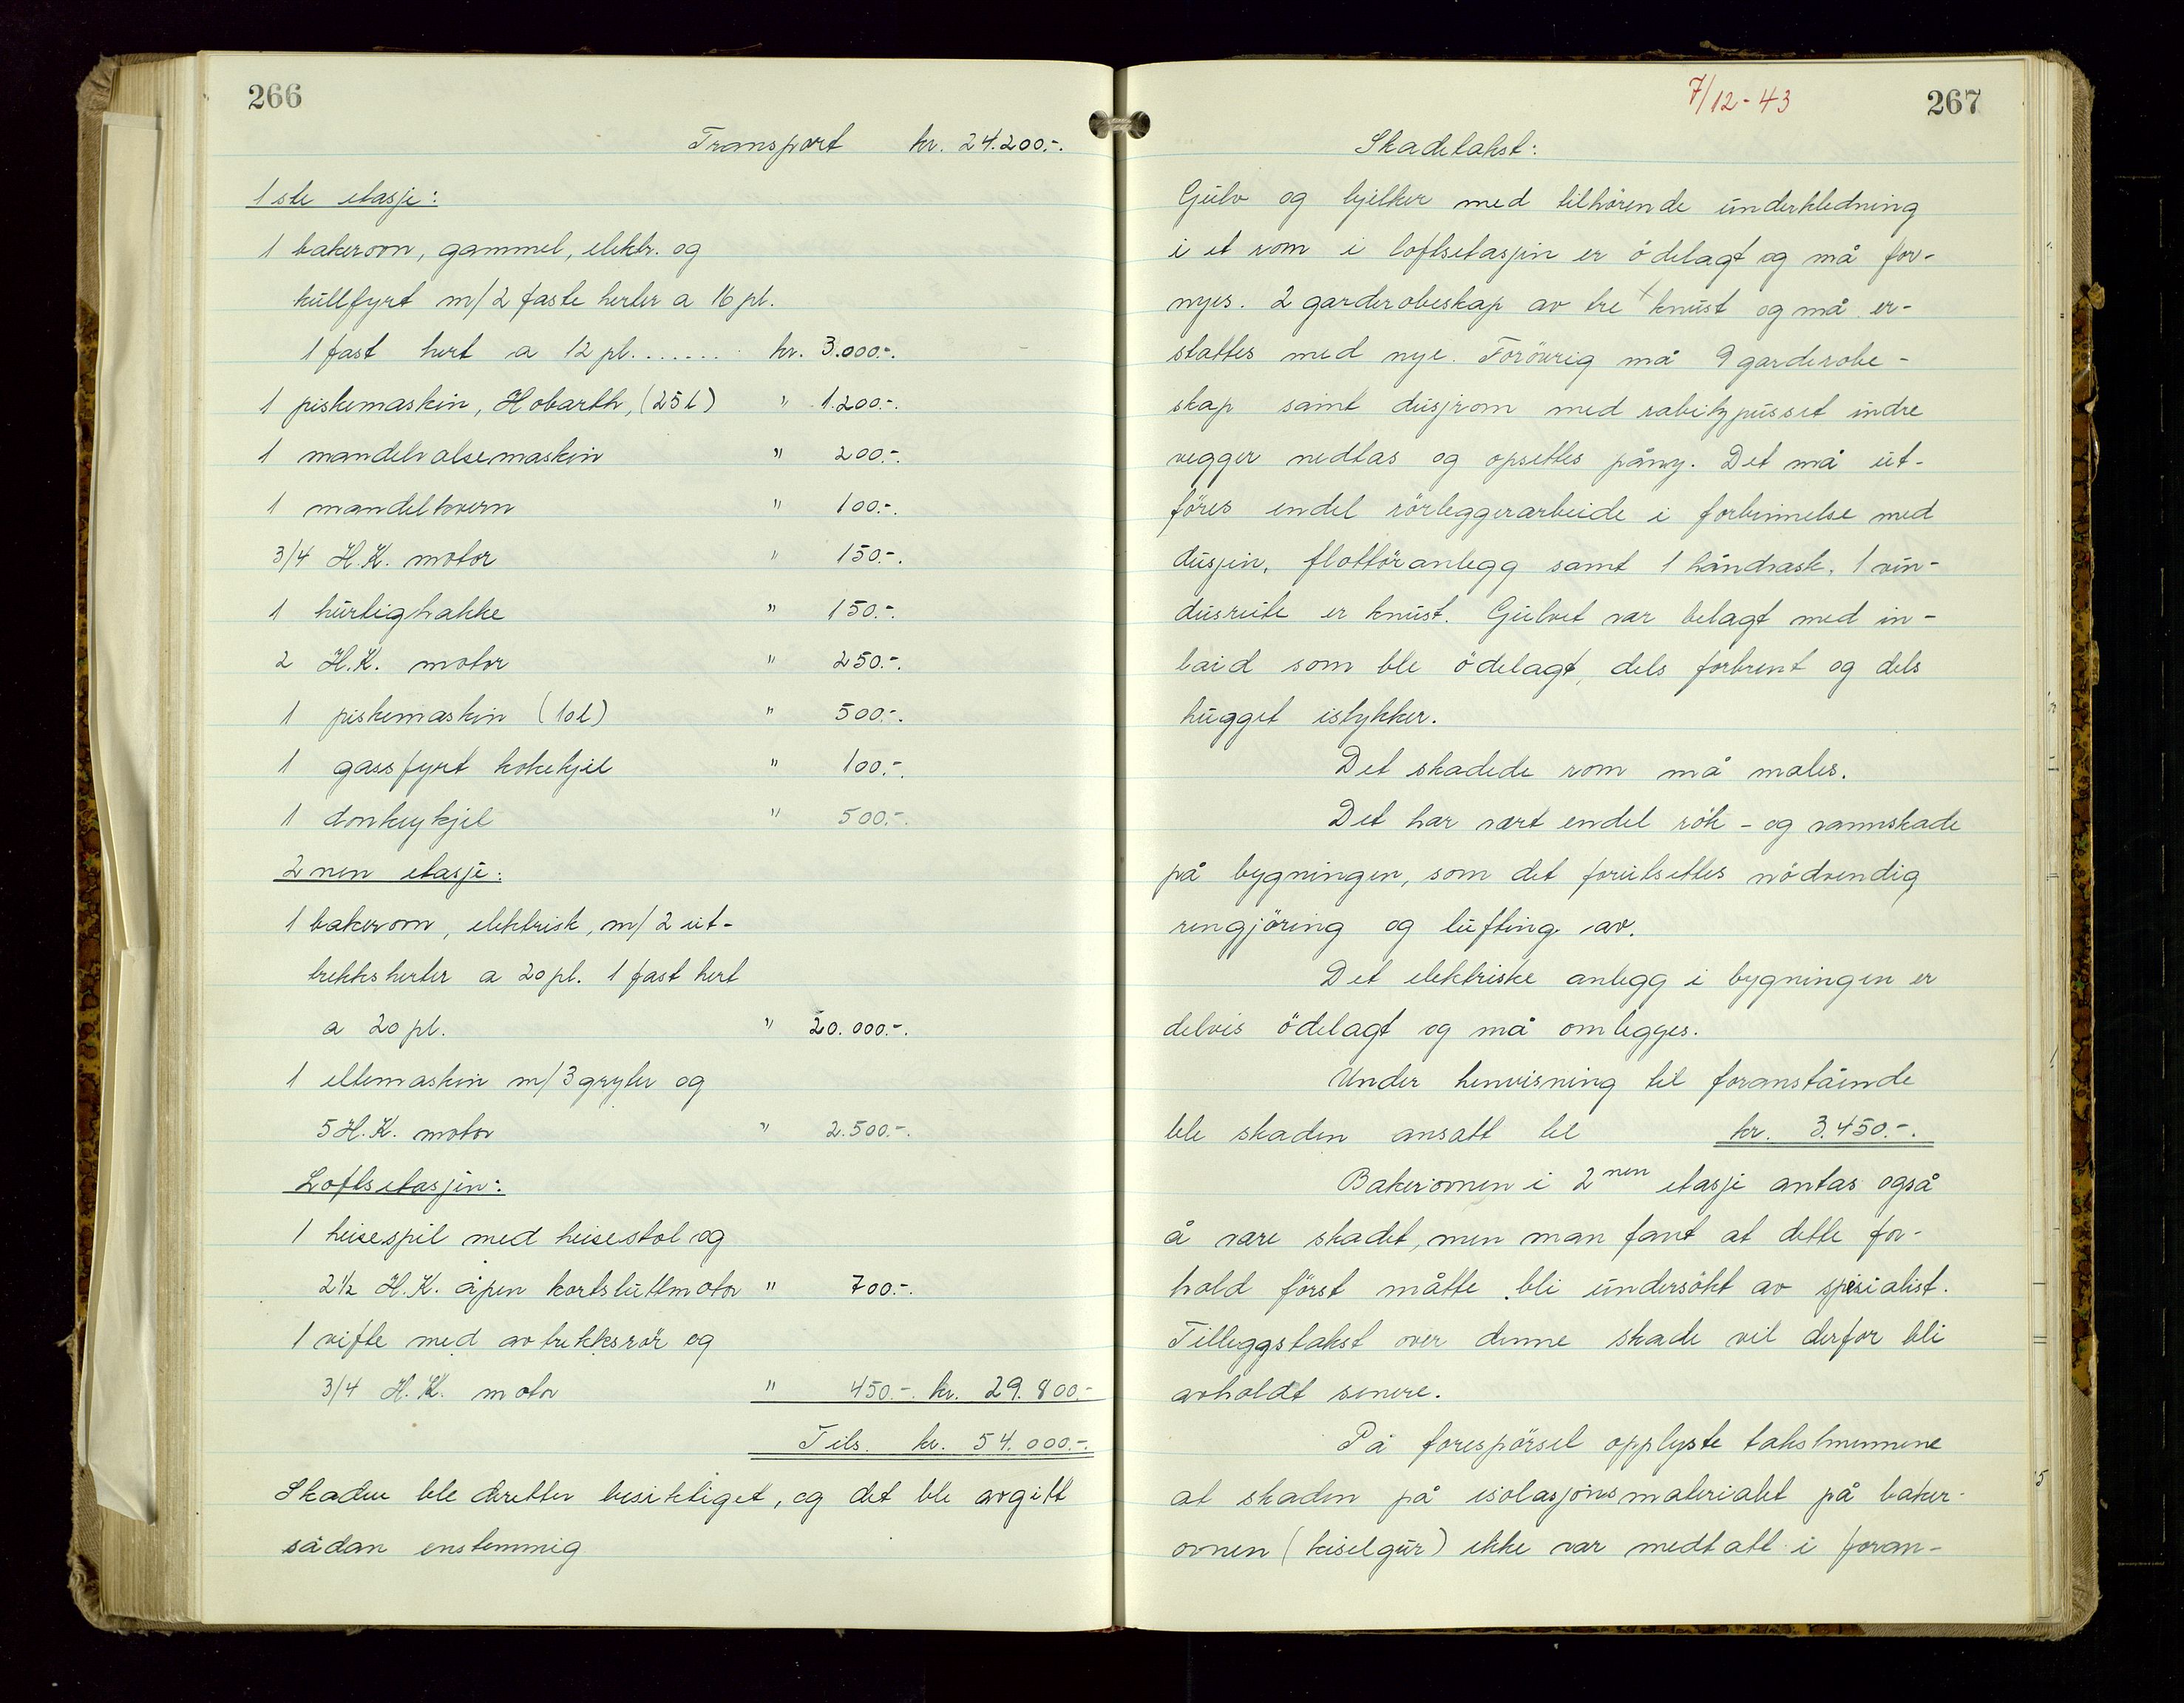 266
Transport kr. 24.200.-.
1ste etasje:
1 bakerovn, gammel, elektr. og
kullfyrt m/2 faste herter a 16 pl.
1 fast hert a 12 pl....... kr. 3.000.-.
1 piskemaskin, Hobarth, (25 L) " 1.200.-.
1 mandelvalsemaskin " 200.-.
1 mandelkvern " 100.-.
3/4 H.K. motor " 150.-.
1 hurtighakke " 150.-.
2 H.K. motor " 250.-.
1 piskemaskin (10 l) " 500.-.
1 gassfyrt kokekjel " 100.-.
1 donkeykjel " 500.-.
2nen etasje:
1 bakerovn, elektrisk, m/2 ut-
trekksherter a 20 pl. 1 fast hert
a 20 pl. " 20.000.-.
1 eltemaskin m/3 gryter og
5 H.K. motor " 2.500.-.
Loftsetasjen:
1 heisespil med heisestol og
2½ H.K. åpen kortsluttmotor " 700.-.
1 vifte med avtrekksrör og
3/4 H.K. motor " 450.-. kr. 29.800.-
Tils. kr. 54.000.-.
Skaden ble deretter besiktiget, og det ble avgitt
sådan enstemmig
7/12-43
267
Skadetakst:
Gulv og bjelker med tilhörende underkledning
i et rom i loftsetasjen er ödelagt og må for-
nyes. 2 garderobeskap av tre x knust og må er-
stattes med nye. Forövrig må 9 garderobe-
skap samt dusjrom med rabitzpusset indre
vegger nedtas og opsettes påny. Det må ut-
föres endel rörleggerarbeide i forbinnelse med
dusjen, flottöranlegg samt 1 håndvask. 1 vin-
dusrute er knust. Gulvet var belagt med in-
laid som ble ödelagt, dels forbrent og dels
hugget istykker.
Det skadede rom må males.
Det har vært endel rök- og vannskade
på bygningen, som det forutsettes nödvendig
rengjöring og lufting av.
Det elektriske anlegg i bygningen er
delvis ödelagt og må omlegges.
Under henvisning til foranstående
ble skaden ansatt til kr. 3.450.-.
Bakerovnen i 2nen etasje antas også
å være skadet, men man fant at dette for-
hold först måtte bli undersökt av spesialist.
Tilleggstakst over denne skade vil derfor bli
avholdt senere.
På forespörsel opplyste takstmennene
at skaden på isolasjonsmaterialet på baker-
ovnen (kiselgur) ikke var medtatt i foran-